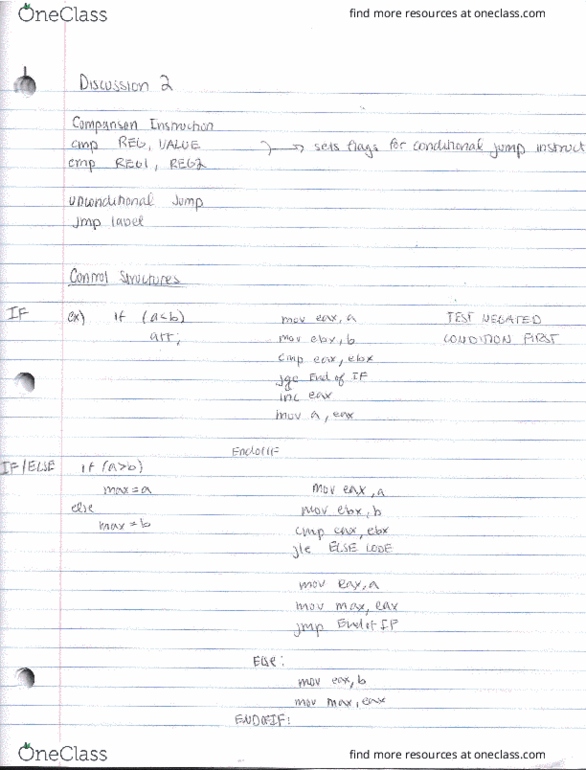 OneClass find more resources at oneclass.com
Discussion 2
Comparison Instruction
cmp REG, VALUE → sets flags for conditional jump instruct
cmp REG1, REG2
Unconditional Jump
jmp label
Control Structures
IF ex) if (a<b) mov eax, a TEST NEGATED
a++; mov ebx, b CONDITION FIRST
cmp eax, ebx
jge End of IF
inc eax
mov a, eax
EndofIF
IF/ELSE if (a>b)
max = a mov eax, a
else mov ebx, b
max = b cmp eax, ebx
jle ELSE CODE
mov eax, a
mov max, eax
jmp End of IF
Else:
mov eax, b
mov max, eax
ENDOFIF:
OneClass find more resources at oneclass.com